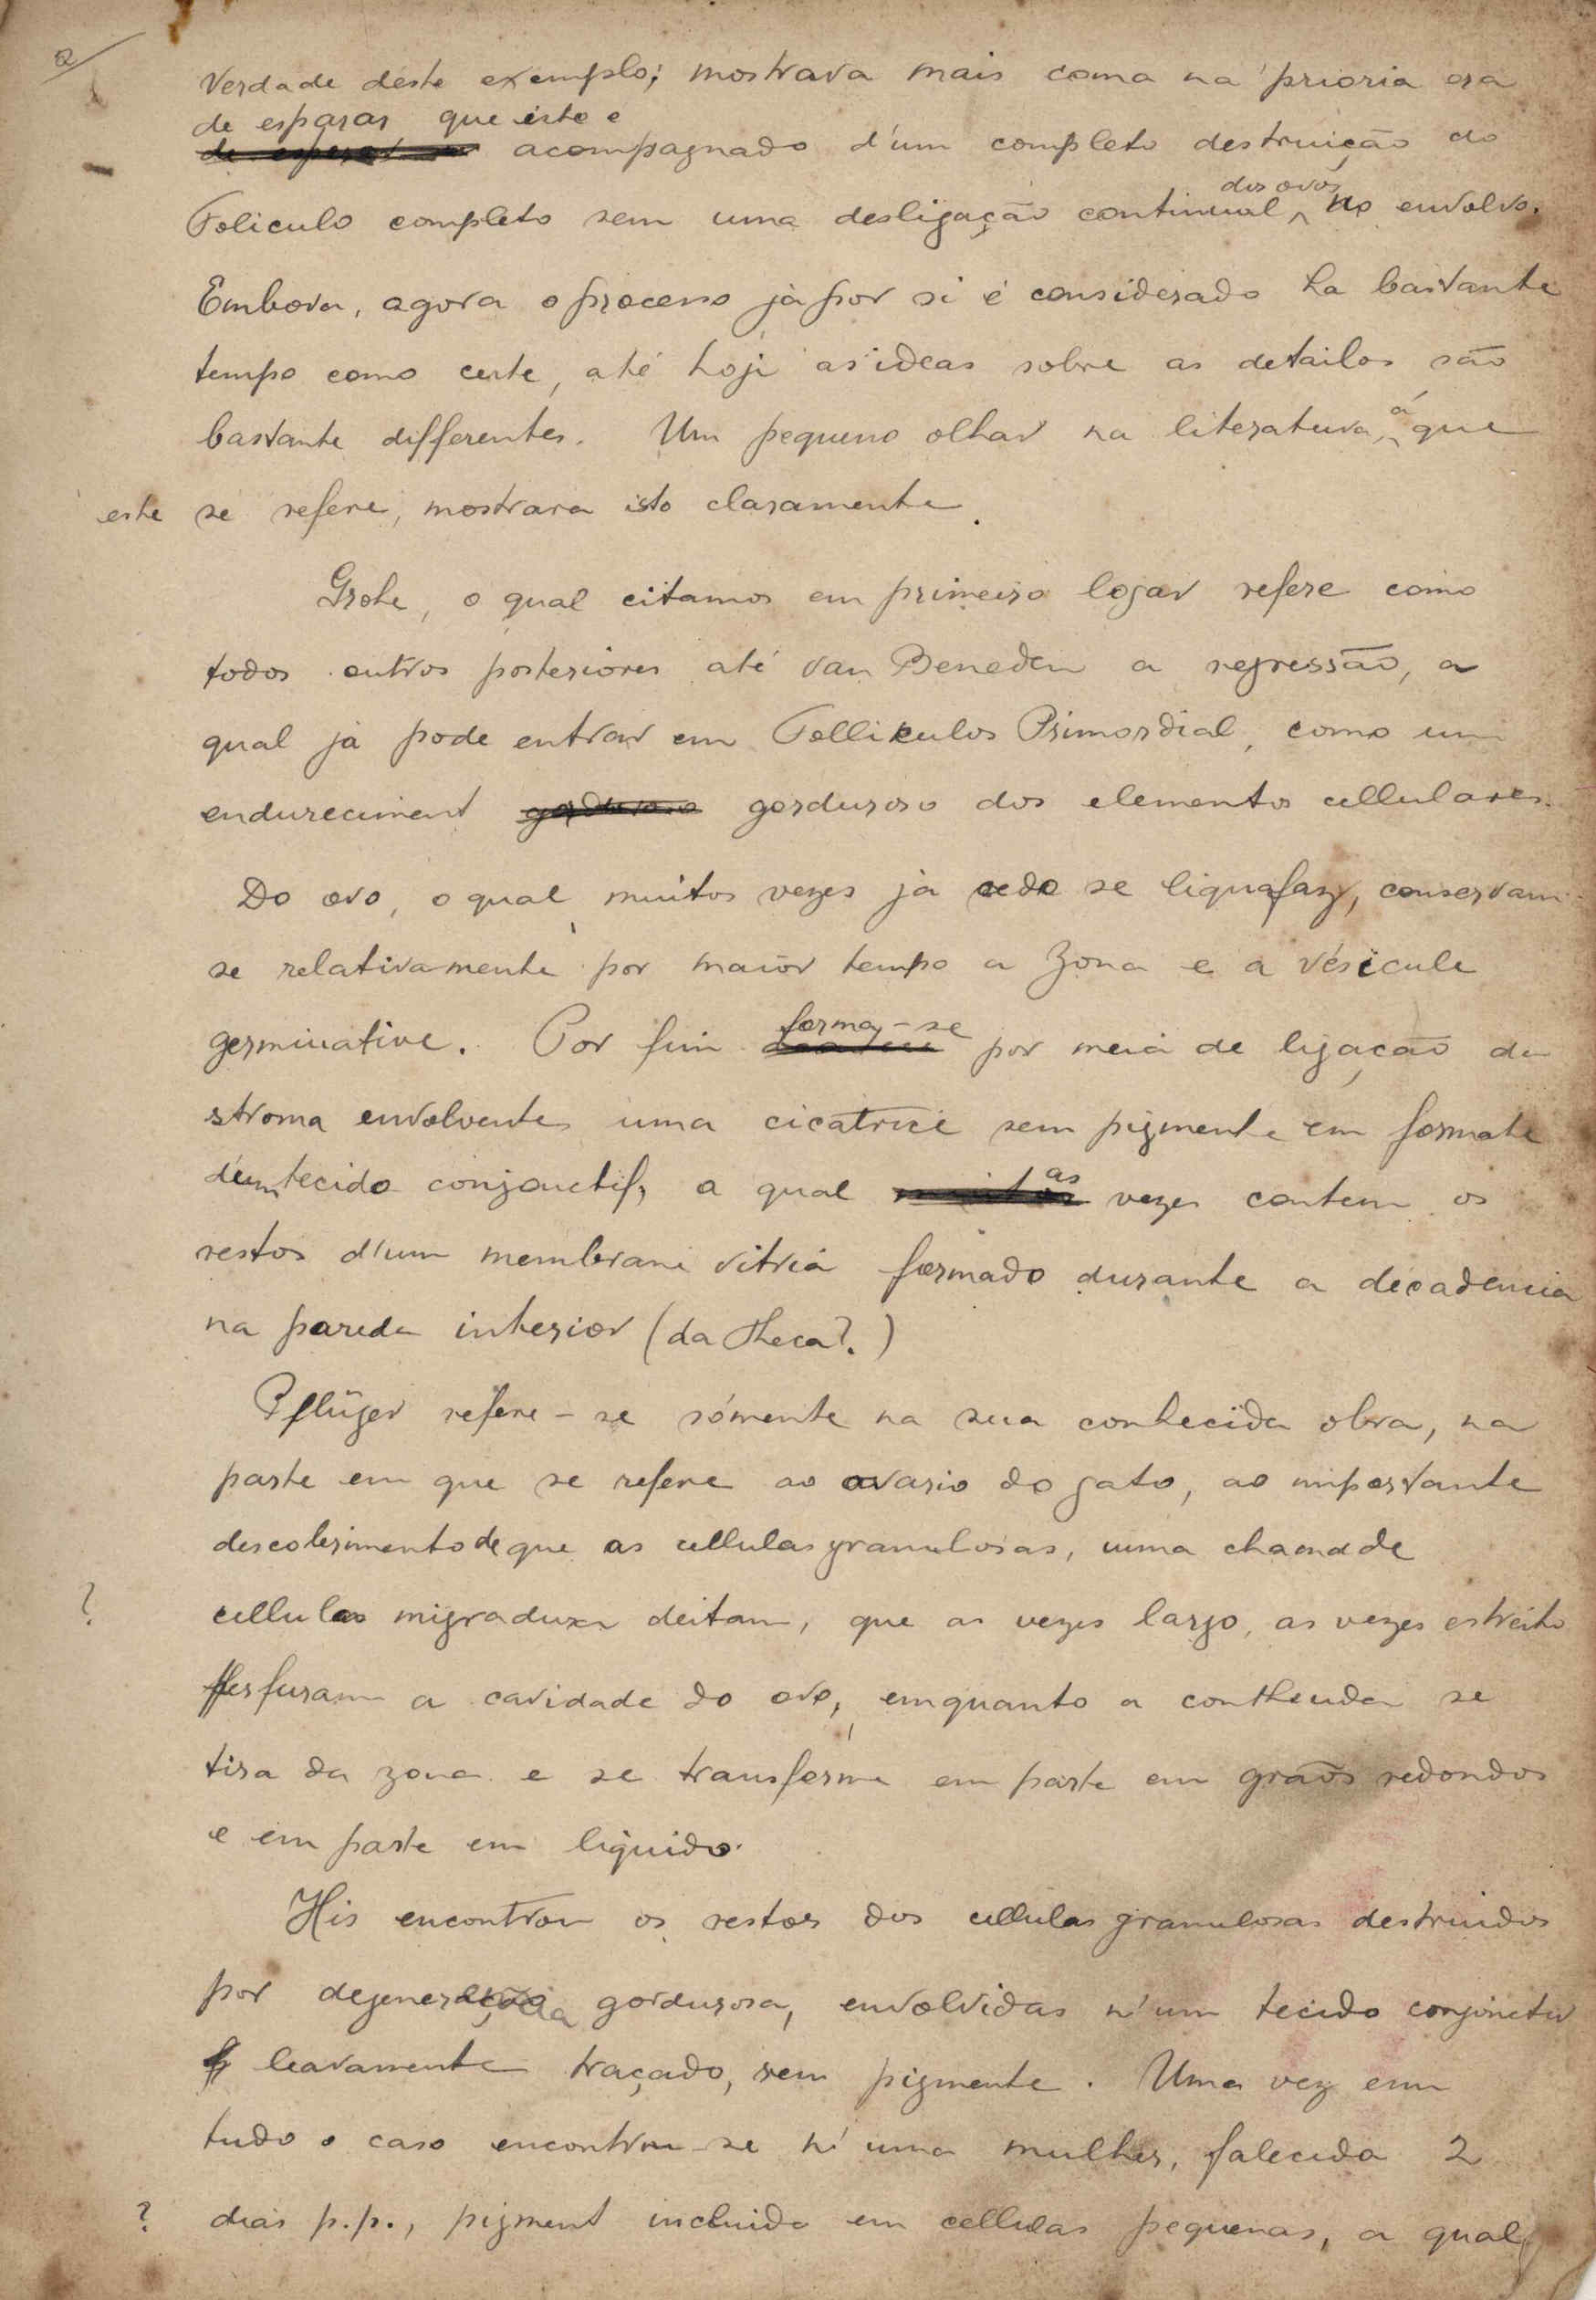 2/
Verdade deste exemplo; mostrava mais coma na prioria era
de esperar que isto e
de esperar acompagnado d'um completo destruição do
Foliculo completo sem uma desligação continual dos ovos no envolvo.
Embora, agora o processo já por si é considerado ha bastante
tempo como certe, até hoji as ideas sobre as detailos são
bastante differentes. Um pequeno olhar na literatura, á que
este se refere, mostrara isto claramente.
Grohe, o qual citamos em primeiro logar refere como
todos outros posteriores até van Beneden a regressão, a
qual já pode entrar em Folliculos Primordial, como um
endureciment gorduroso gorduroso dos elementos cellulares.
Do ovo, o qual muitos vezes já cedo se liquafaz, conservam-
se relativamente por maior tempo a Zona e a vésicule
germinative. Por fim forma-se por meiá de ligação da
stroma envolvente uma cicatrice sem pigmente em formate
d'um tecido conjonctif, a qual as vezes contem os
restos d'um membrane vitriá formado durante a décadencia
na parede interior (da theca?.)
Pflüger refere-se sómente na sua conhecida obra, na
parte em que se refere ao ovario do gato, ao importante
descobrimento de que as cellulas granulosas, uma chamade
? cellulas migraduxa deitam, que as vezes largo, as vezes estreito
perfuram a cavidade do ovo, emquanto a contheuda se
tira da zona e se transforma em parte em graõs redondos
e em parte em liquido.
His encontrou os restos dos cellulas granulosas destruidos
por degeneração gordurosa, envolvidas n'um tecido conjonctiv
leavamente traçado, sem pigmente. Uma vez em
tudo o caso encontrou-se n'uma mulher, falecida 2
? dias p.p., pigment incluido em cellulas pequenas, a qual